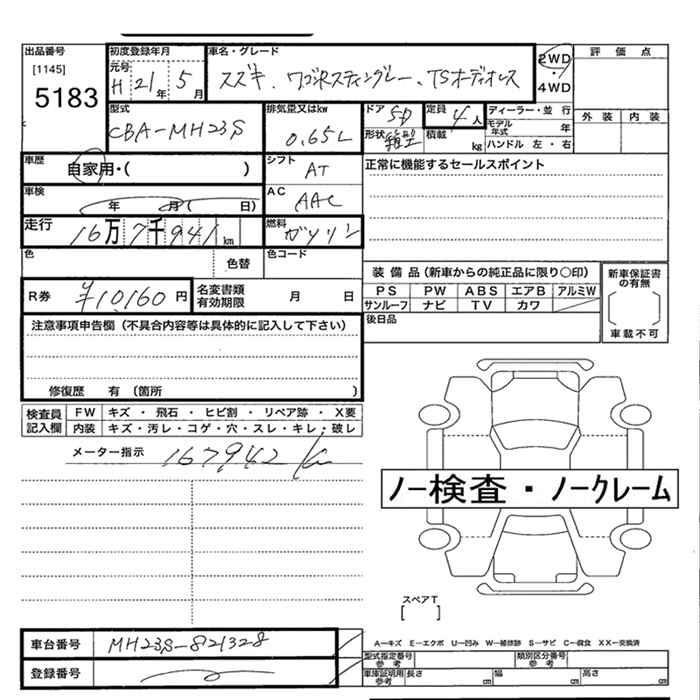 出品番号
[1145]
5183
初度登録年月
元号
H 21年 5月
車名・グレード
スズキ.ワゴンRスティングレー、TSオーディオレス
2WD
・
4WD
評価点
外装 内装
型式
CBA-MH23S
排気量又はkw
0.65L
ドア 5D
定員 4人
形状
積載 kg
ディーラー・並行
モデル年式 年
ハンドル 左・右
車歴
自家用・( )
シフト
AT
正常に機能するセールスポイント
車検
年 月( 日)
AC
AAC
走行
16万7千941km
燃料
ガソリン
色
色替
色コード
R券 ¥10,160円
名変書類有効期限 月 日
装備品(新車からの純正品に限り○印)
PS PW ABS エアB アルミW
サンルーフ ナビ TV カワ
新車保証書の有無
[ ]
車載不可
後日品
注意事項申告欄(不具合内容等は具体的に記入して下さい)
修復歴 有(箇所 )
検査員記入欄
FW キズ・飛石・ヒビ割・リペア跡・X要
内装 キズ・汚レ・コゲ・穴・スレ・キレ・破レ
メーター指示 167942 km
ノー検査・ノークレーム
スペアT
[ ]
車台番号 MH23S-821328
登録番号
A-キズ E-エクボ U-凹み W-補修跡 S-サビ C-腐食 XX-交換済
型式指定番号参考
類別区分番号参考
車庫証明用参考 長さ cm 幅 cm 高さ cm